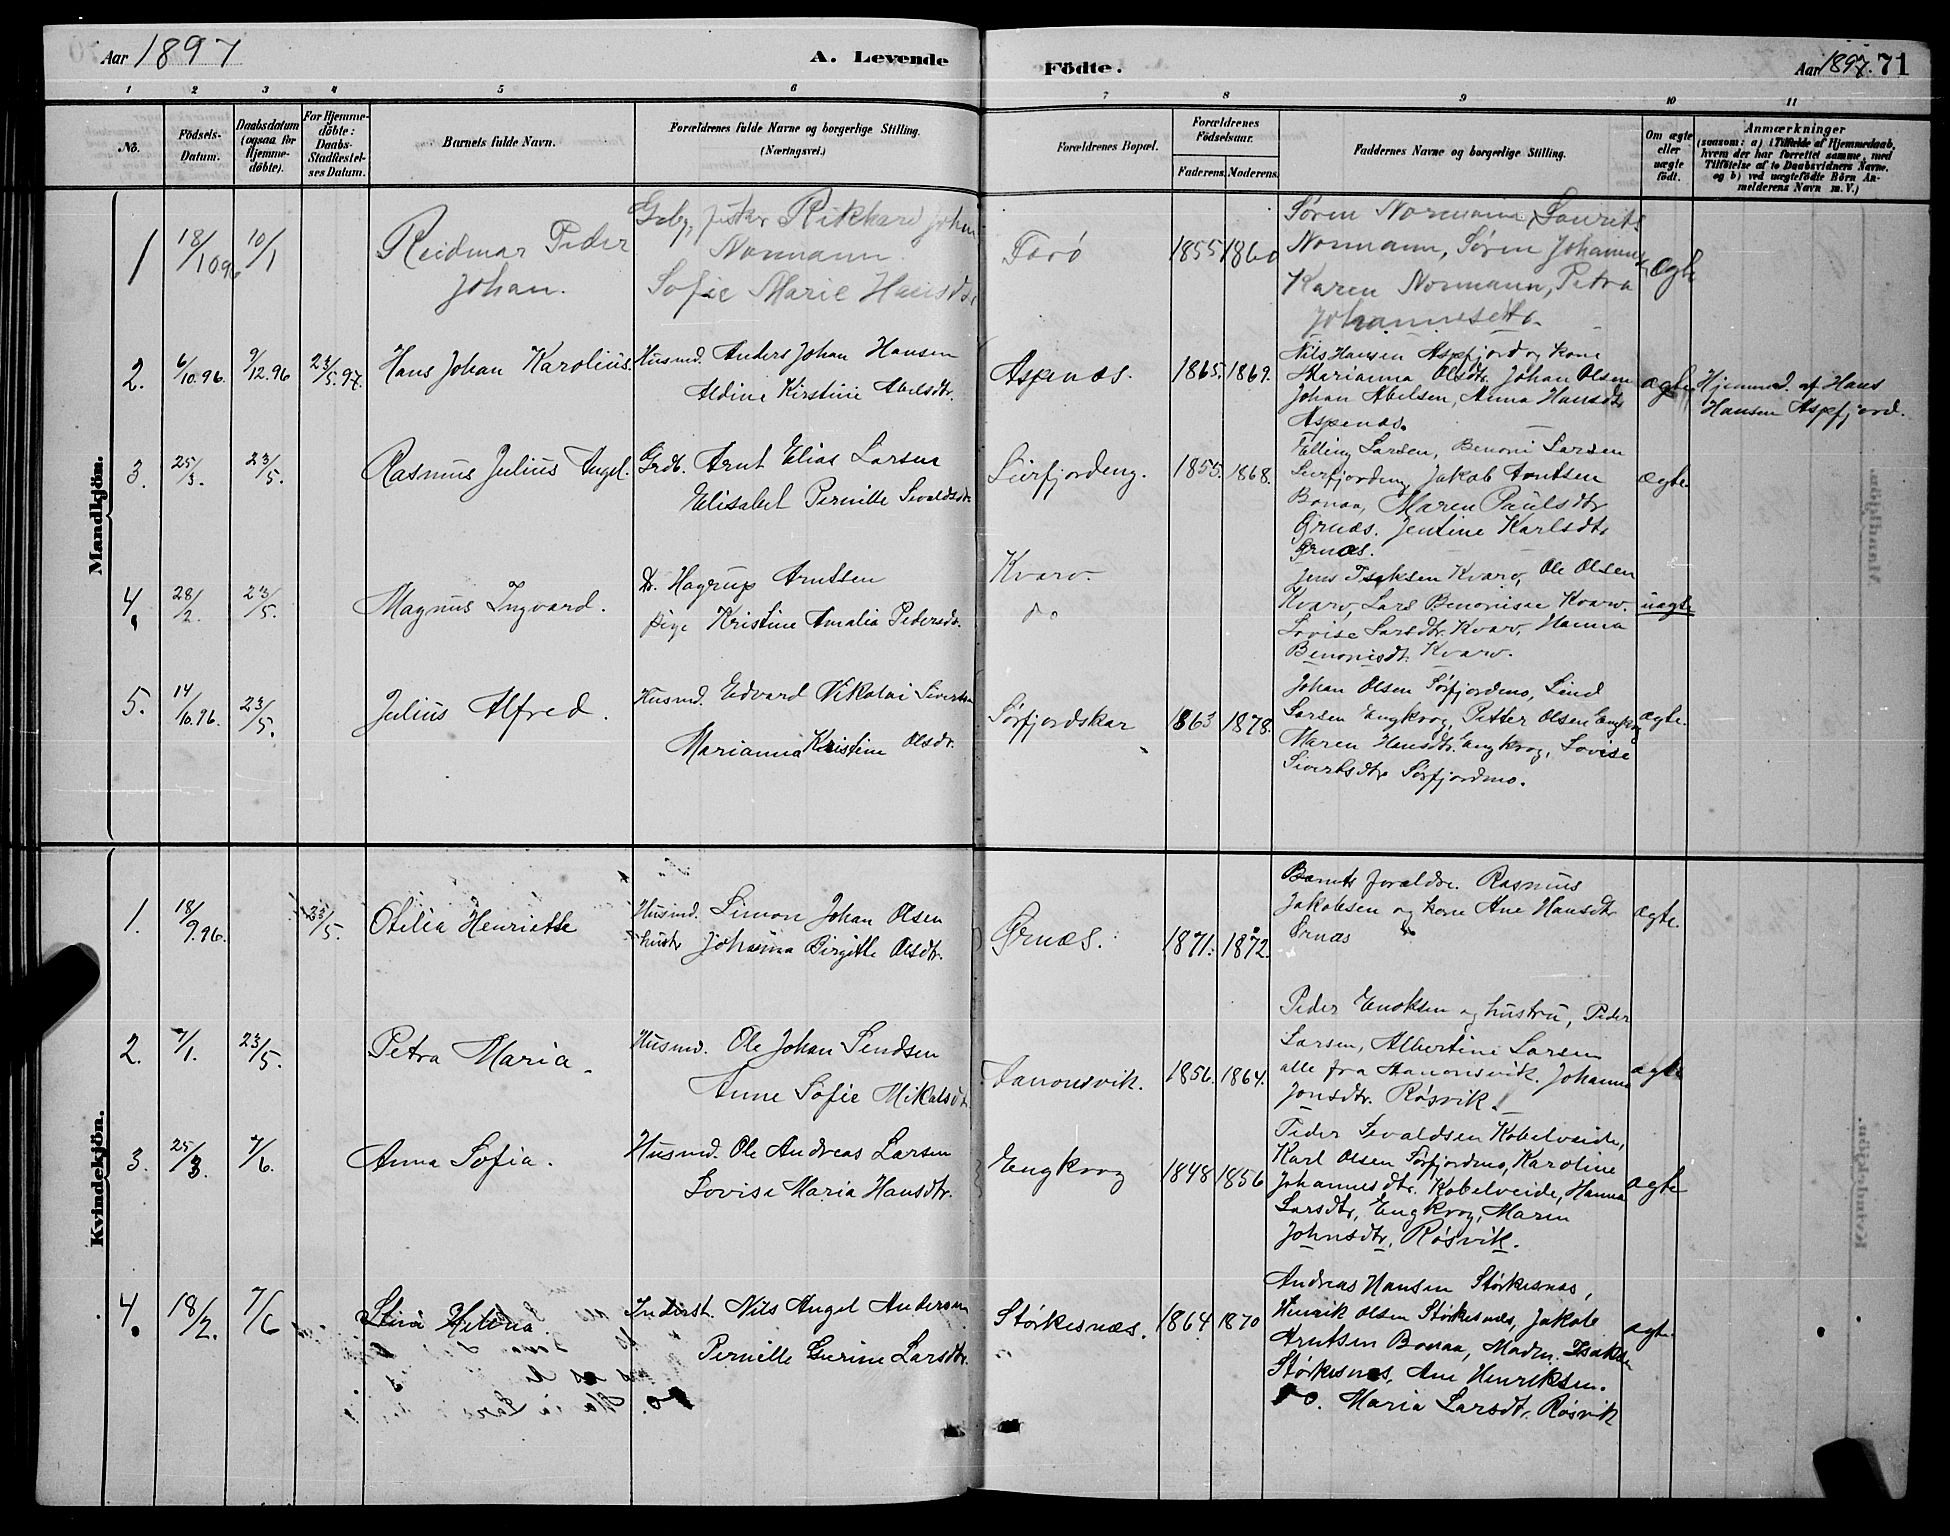 Aar 1897
A. Levende
Födte.
Aar 1897. 71
1 2 3 4 5 6 7 8 9 10 11
No.
Födsels-
Datum.
Daabsdatum
(ogsaa for
Hjemme-
döbte).
For Hjemme-
döbte:
Daabs-
Stadfæstel-
ses Datum.
Barnets fulde Navn.
Forældrenes fulde Navne og borgerlige Stilling.
(Næringsvei.)
Forældrenes Bopæl.
Forældrenes
Födselsaar.
Faderens. Moderens.
Faddernes Navne og borgerlige Stilling.
Om ægte
eller
uægte
født.
Anmærkninger
(saasom: a) i Tilfælde af Hjemmedaab,
hvem der har forrettet samme, med
Tilföielse af to Daabsvidners Navne,
og b) ved uægtefödte Börn An-
melderens Navn m. V.)
Mandkjön.
1 18/10 96 10/1 Reidmar Peder
Johan.
Gbr., fisker Rikhard Johan
Normann
Sofie Marie Hansdtr
Farø 1855 1860
Søren Normann, Laurits
Normann, Søren Johannes,
Karen Normann, Petra
Johannesdtr.
ægte
2. 6/10.96. 9/12.96 23/5.97. Hans Johan Karolius.
Husmd. Anders Johan Hansen
Aldine Kirstine Abelsdtr.
Aspenæs. 1865. 1869.
Nils Hansen Aspfjord og kone
Marianna Olsdtr. Johan Olsen
Johan Abelsen, Anna Hansdtr
Aspenæs.
ægte
Hjemmed. af Hans
Hansen Aspfjord.
3. 25/3. 23/5. Rasmus Julius Angel.
Grdb. Arnt Elias Larsen
Elisabet Pernille Sevaldsdtr.
Leirfjordeng. 1855. 1868.
Elling Larsen, Benoni Larsen
Leirfjordeng, Jakob Arntsen
Bonaa, Maren Paulsdtr
Ørnæs. Jentine Karlsdtr
Ørnæs.
ægte.
4. 28/2. 23/5. Magnus Ingvard.
Hagrup Arntsen
pige Kristine Amalia Pedersdtr.
Kvarv.
do
Jens Isaksen Kvarv, Ole Olsen
Kvarv, Lars Benonisen Kvarv.
Lovise Larsdtr. Kvarv, Hanna
Benonisdt. Kvarv.
uægte
5. 14/10.96. 23/5. Julius Alfred.
Husmd. Edvard Nikolai Sivertsen
Marianna Kristine Olsdr.
Sørfjordskar 1863 1878.
Johan Olsen Sørfjordmo, Lind
Larsen Engkrog, Petter Olsen Engkrog
Maren Hansdtr. Engkrog, Lovise
Sivertsdtr Sørfjordmo.
ægte.
Kvindekjön.
1. 18/9.96. 23/5. Otilia Henriette
Husmd. Simon Johan Olsen
hustr Johanna Birgitte Olsdtr.
Ørnæs. 1871. 1872.
Barnets forældre. Rasmus
Jakobsen og kone Ane Hansdtr
Ørnæs
ægte.
2. 7/1. 23/5. Petra Maria.
Husmd. Ole Johan Lendsen
Anne Sofie Mikalsdt.
Hanonsvik. 1856. 1864.
Peder Enoksen og hustru, Peder
Larsen, Albertine Larsen
alle fra Hanonsvik. Johanna
Jonsdtr. Røsvik.
ægte
3. 25/3. 7/6. Anna Sofia.
Husmd. Ole Andreas Larsen
Lovise Maria Hansdtr.
Engkrog 1848 1856
Peder Sevaldsen Kobelveide,
Karl Olsen Sørfjordmo, Karoline
Johannesdtr. Kobelveide, Hanna
Larsdtr, Engkrog, Maren
Johnsdtr, Røsvik.
ægte
4. 18/2. 7/6 Stina Helena.
Inderst. Nils Angel Andersen
Pernille Gurine Larsdtr.
Størkesnæs. 1864 1870
Andreas Hansen Størkesnæs,
Henrik Olsen Størkesnæs, Jakob
Arntsen Bonaa, Madm. Isaksen
Størkesnes, Ane Henriksen.
do. Maria Larsdtr. Røsvik
ægte.